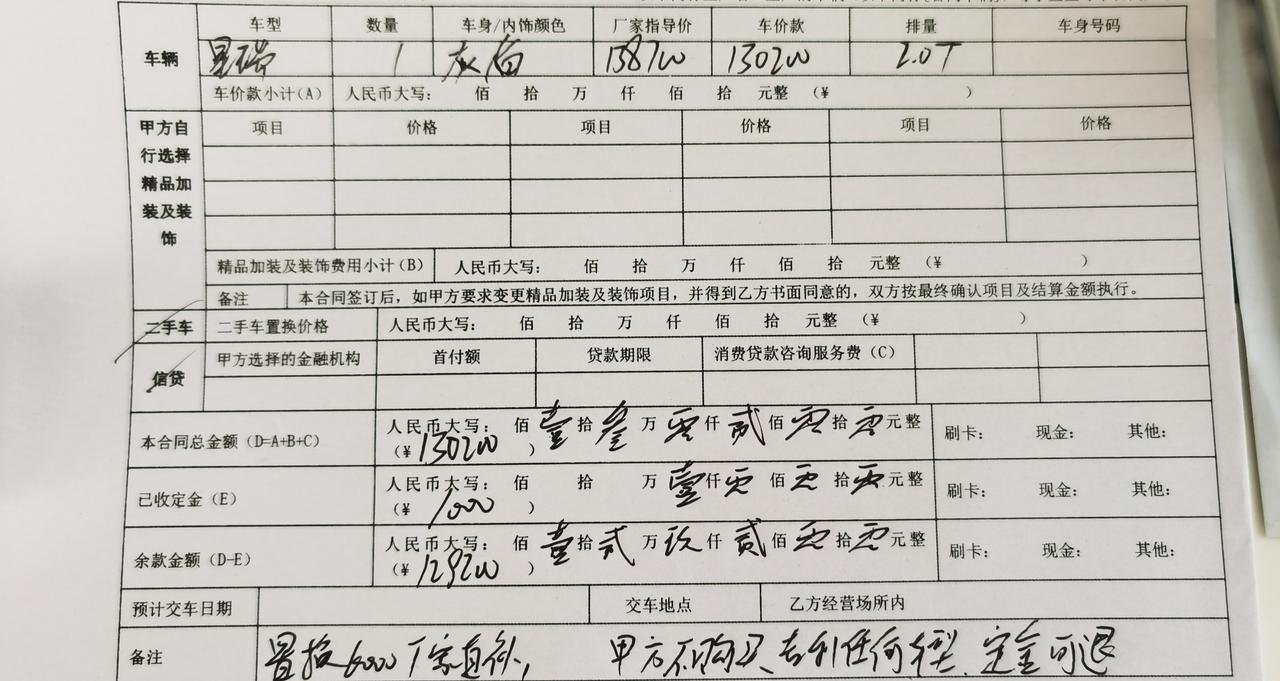 车型 数量 车身/内饰颜色 厂家指导价 车价款 排量 车身号码
车辆 星瑞 1 灰/白 138700 130200 2.0T
车价款小计(A) 人民币大写: 佰 拾 万 仟 佰 拾 元整 (¥ )
甲方自行选择精品加装及装饰
项目 价格 项目 价格 项目 价格
精品加装及装饰费用小计(B) 人民币大写: 佰 拾 万 仟 佰 拾 元整 (¥ )
备注 本合同签订后,如甲方要求变更精品加装及装饰项目,并得到乙方书面同意的,双方按最终确认项目及结算金额执行。
二手车 二手车置换价格 人民币大写: 佰 拾 万 仟 佰 拾 元整 (¥ )
信贷 甲方选择的金融机构 首付额 贷款期限 消费贷款咨询服务费(C)
本合同总金额(D=A+B+C) 人民币大写: 佰 壹 拾 叁 万 零 仟 贰 佰 零 拾 零 元整 刷卡: 现金: 其他:
(¥ 130200 )
已收定金(E) 人民币大写: 佰 拾 万 壹 仟 零 佰 零 拾 零 元整 刷卡: 现金: 其他:
(¥ 1000 )
余款金额(D-E) 人民币大写: 佰 壹 拾 贰 万 玖 仟 贰 佰 零 拾 零 元整 刷卡: 现金: 其他:
(¥ 129200 )
预计交车日期 交车地点 乙方经营场所内
备注 置换6000厂家自补, 甲方不购买吉利任何车型,定金可退